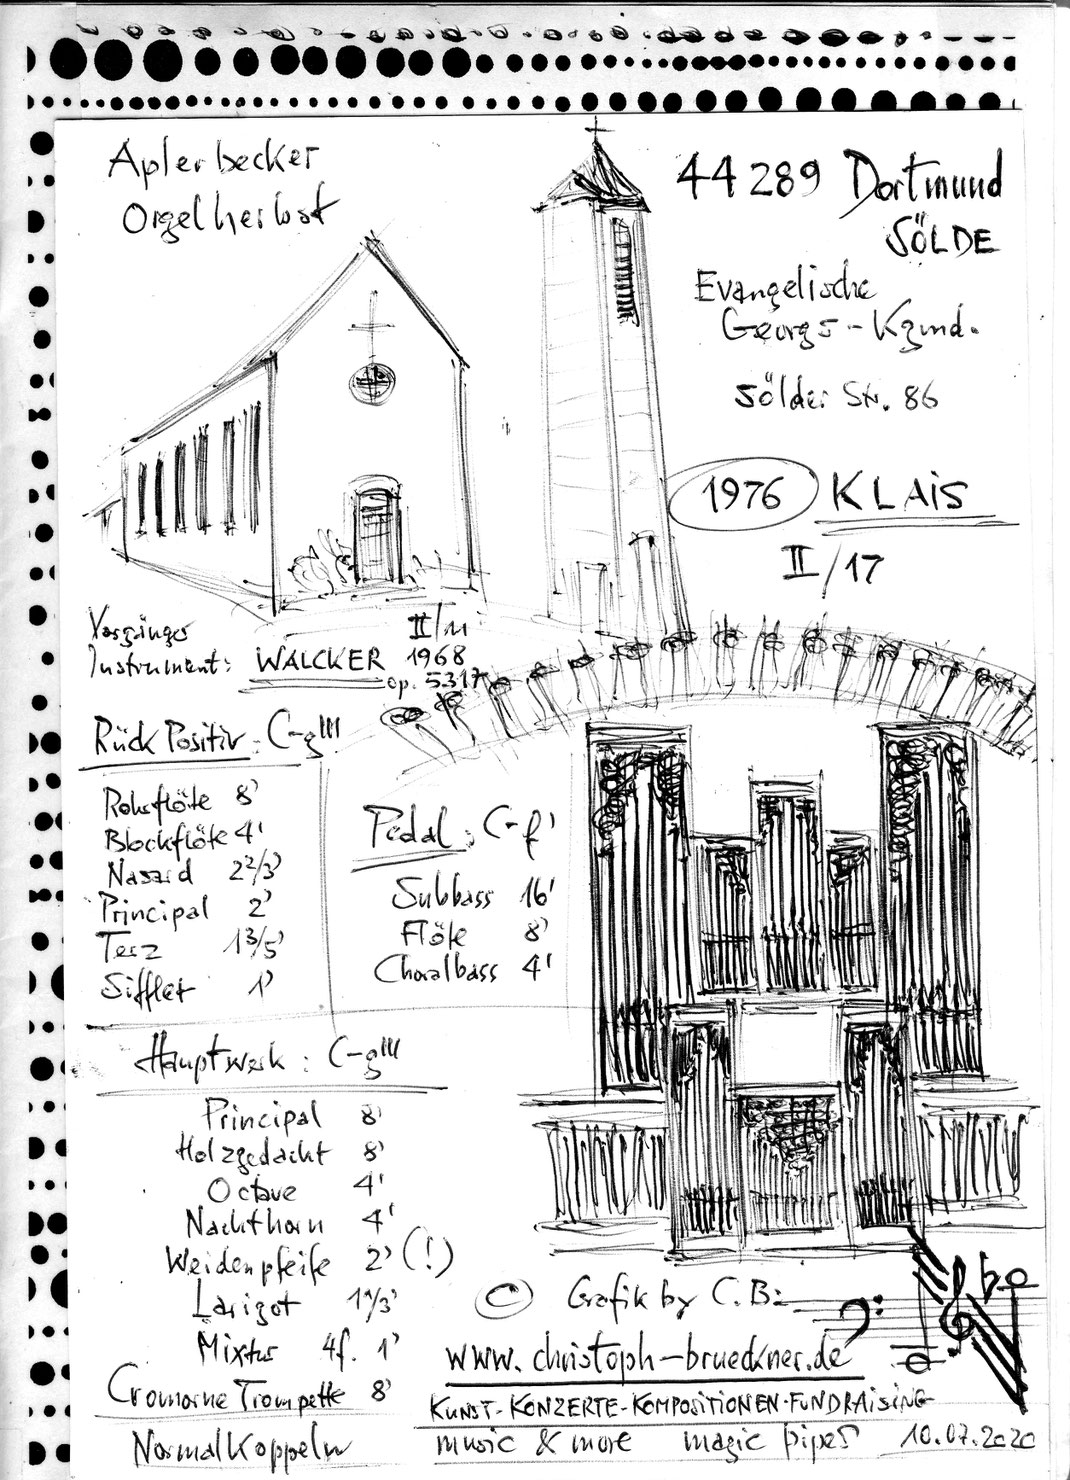 Aplerbecker
Orgelherbst
44289 Dortmund
SÖLDE
Evangelische
Georgs-Kgmd.
Sölder Str. 86
1976 KLAIS
II/17
Vorgänger
Instrument: WALCKER
II/11
1968
op. 5317
RückPositiv: C-g'''
Rohrflöte 8'
Blockflöte 4'
Nasard 2 2/3'
Principal 2'
Terz 1 3/5'
Sifflet 1'
Pedal: C-f'
Subbass 16'
Flöte 8'
Choralbass 4'
Hauptwerk: C-g'''
Principal 8'
Holzgedackt 8'
Octave 4'
Nachthorn 4'
Weidenpfeife 2' (!)
Larigot 1 1/3'
Mixtur 4f. 1'
Cromorne Trompette 8'
NormalKoppeln
© Grafik by C.B:
www.christoph-brueckner.de
KUNST-KONZERTE-KOMPOSITIONEN-FUNDRAISING
music & more magic pipes 10.07.2020